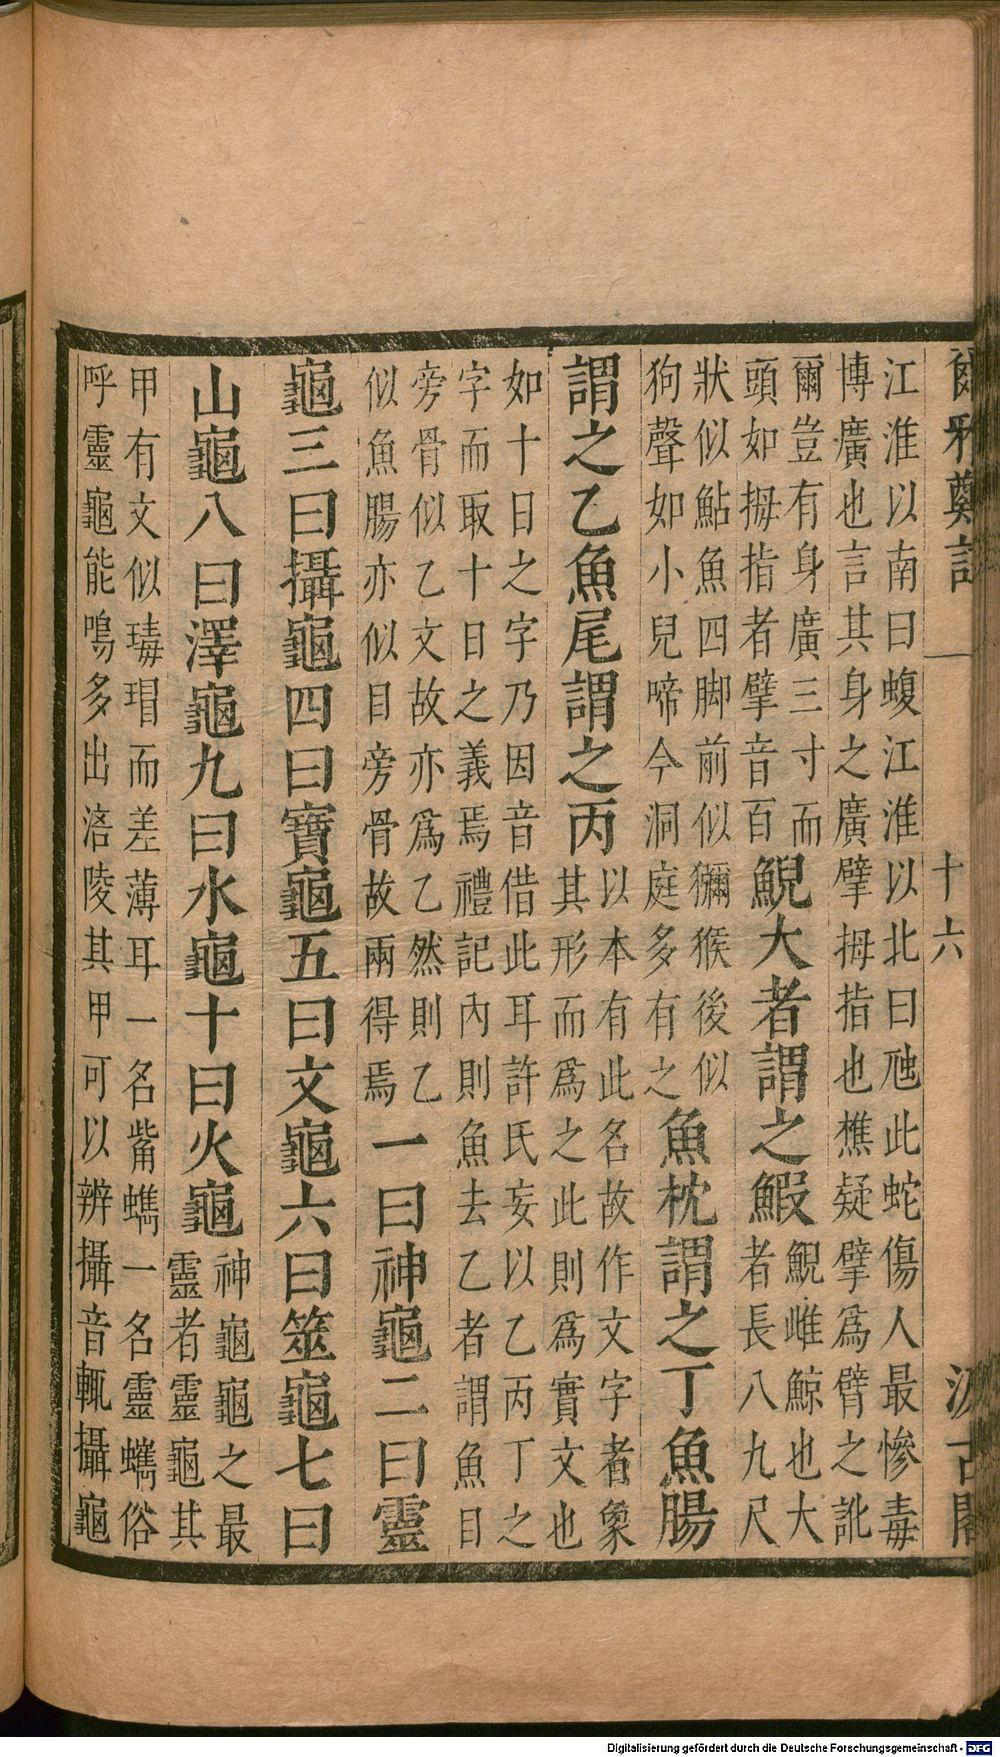 爾雅鄭註 十六 汲古閣
江淮以南曰蝮江淮以北曰虺此蛇傷人最慘毒
博廣也言其身之廣擘拇指也樵疑擘爲臂之訛
爾豈有身廣三寸而
頭如拇指者擘音百
鯢大者謂之鰕
鯢雌鯨也大
者長八九尺
狀似鮎魚四脚前似獼猴後似
狗聲如小兒啼今洞庭多有之
魚枕謂之丁魚腸
謂之乙魚尾謂之丙
以本有此名故作文字者象
其形而爲之此則爲實文也
如十日之字乃因音借此耳許氏妄以乙丙丁之
字而取十日之義焉禮記內則魚去乙者謂魚目
旁骨似乙文故亦爲乙然則乙
似魚腸亦似目旁骨故兩得焉
一曰神龜二曰靈
龜三曰攝龜四曰寶龜五曰文龜六曰筮龜七曰
山龜八曰澤龜九曰水龜十曰火龜
神龜龜之最
靈者靈龜其
甲有文似瑇瑁而差薄耳一名觜蠵一名靈蠵俗
呼靈龜能鳴多出涪陵其甲可以辨攝音輒攝龜
Digitalisierung gefördert durch die Deutsche Forschungsgemeinschaft - DFG